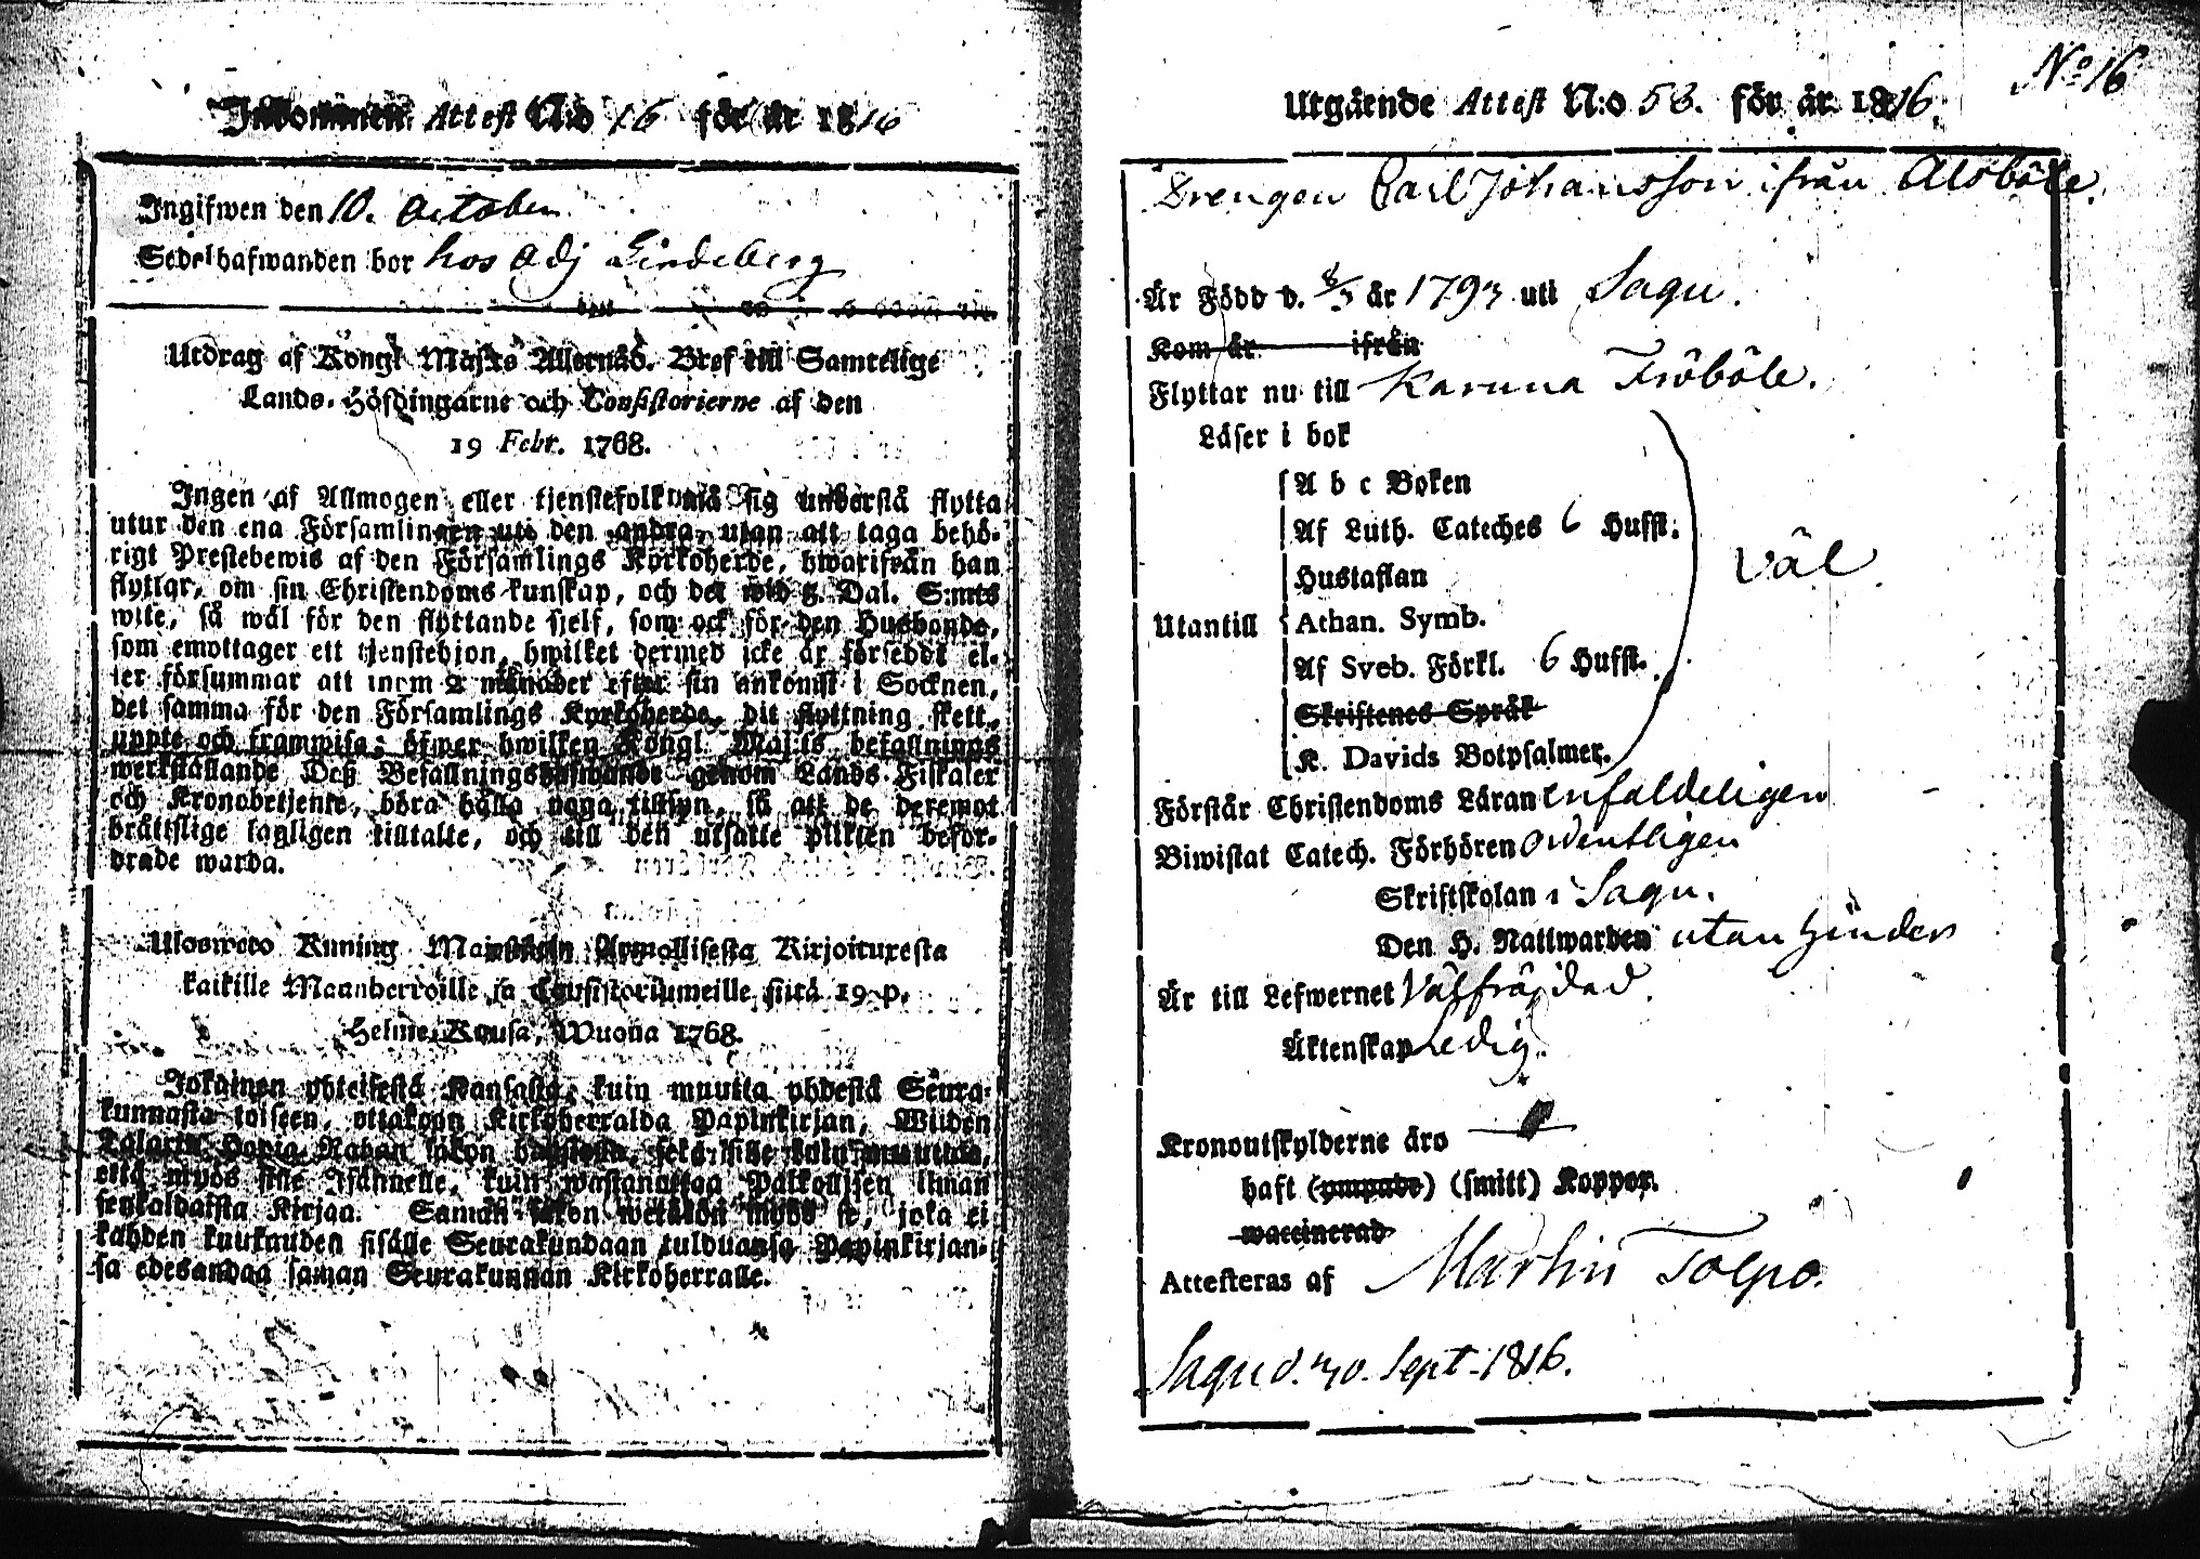 Inkommen Attest N:o 16 för år 1816
Ingifwen den 10. October
Sedelhafwanden bor hos Adj Lindeberg
Utdrag af Kongl Maj:ts Allernåd. Bref till Samtelige
Lands-Höfdingarne och Consistorierne af den
19 Febr. 1768.
Ingen af Allmogen eller tjenstefolk må sig understå flytta
utur den ena Församlingen uti den andra, utan att taga behö-
rigt Prestebewis af den Församlings Kyrkoherde, hwarifrån han
flyttar, om sin Christendoms kunskap, och det wid 8. Dal. S:mts
wite, så wäl för den flyttande sjelf, som ock för den Husbonde,
som emottager ett tjenstehjon, hwilket dermed icke är förseddt el-
ler försummar att inom 2 månader efter sin ankomst i Socknen,
det samma för den Församlings Kyrkoherde, dit flyttning skett,
uppte och framwisa; öfwer hwilken Kongl. Maj:ts befallnings
werkställande Deß Befallningshafwande genom Lands-Fiskaler
och Kronobetjente, böra hålla noga tillsyn, så att de deremot
bråttslige lagligen tilltalte, och till den utsatte plikten befor-
drade warda.
Uloswето Kuning. Majestetin Armollisesta Kirjoituxesta
kaikille Maanherroille ja Consistoriumeille siitä 19 p.
Helme Kuusa, Wuona 1768.
Jokainen yhteisestä Kansasta, kuin muutta yhdestä Seura-
kunnasta toiseen, ottakoon Kirkoherralda Papinkirjan, Wiiden
Talarin Hopia Rahan sakon
että myös sille Isännelle, kuin wastanottaa Palkollisen ilman
senkaldaista Kirjaa. Saman sakon wetäkön myös se, joka ei
kahden kuukauden sisälle Seurakundaan tulduansa Papinkirjan-
sa edesandaa saman Seurakunnan Kirkoherralle.
No 16
Utgående Attest N:o 58. för år 1816.
Drengen Carl Johansson ifrån Alsböle.
Är Född d. 8/3 år 1793 uti Sagu.
Kom år ifrån
Flyttar nu till Karuna Fröböle.
Läser i bok
A b c Boken
Af Luth. Cateches 6 Hufst.
Hustaflan
Väl
Utantill Athan. Symb.
Af Sveb. Förkl. 6 Hufst.
Skriftenes Språk
K. Davids Botpsalmer.
Förstår Christendoms Läran enfaldeligen
Biwistat Catech. Förhören ordentligen
Skriftskolan i Sagu.
Den H. Nattwarden utan hinder
Är till Lefwernet Välfräjdad.
Äktenskap Ledig.
Kronoutskylderne äro
haft (ympade) (smitt) Koppor.
waccinerad
Attesteras af Martin Tolpo.
Sagu d. 30. Sept. 1816.